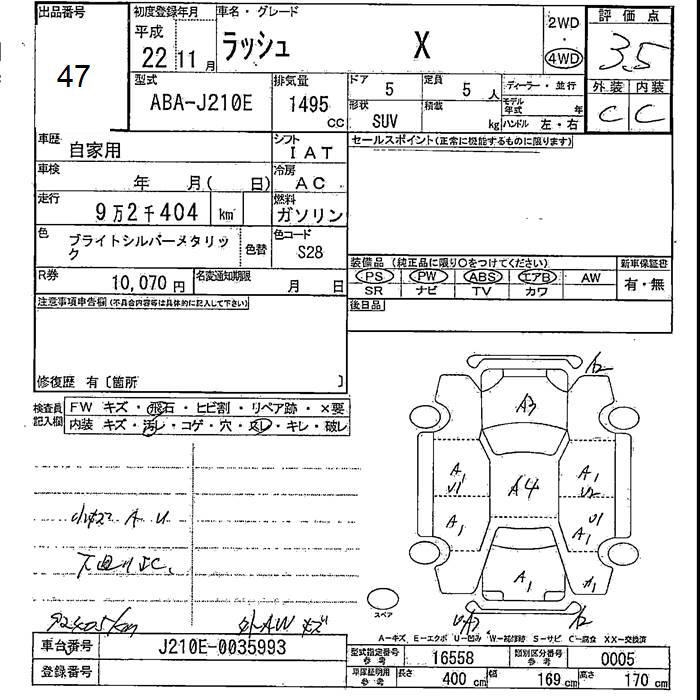 出品番号
47
初度登録年月
平成
22 11 月
車名・グレード
ラッシュ X
2WD
・
4WD
評価点
3.5
外装 内装
C C
型式
ABA-J210E
排気量
1495
CC
ドア 5
定員 5 人
ディーラー・並行
形状 SUV
積載 kg
モデル年式 年
ハンドル 左・右
車歴 自家用
シフト IAT
セールスポイント(正常に機能するものに限ります)
車検 年 月( 日)
冷房 AC
走行 9万2千404 km
燃料 ガソリン
色 ブライトシルバーメタリック
色替
色コード S28
装備品(純正品に限り○をつけてください)
新車保証書
PS PW ABS エアB AW
SR ナビ TV カワ
有・無
R券 10,070 円
名変通知期限 月 日
後日品
注意事項申告欄(不具合内容等は具体的に記入して下さい)
修復歴 有〔箇所 〕
検査員記入欄
FW キズ・飛石・ヒビ割・リペア跡・×要
内装 キズ・汚レ・コゲ・穴・スレ・キレ・破レ
A2
A3
A1 U1
A4
A1 U2
A1
U1 A1
A1
A1
A2
A U
下回リ
92405km
外AW キズ
スペア
A-キズ E-エクボ U-凹み W-補修跡 S-サビ C-腐食 XX-交換済
車台番号 J210E-0035993
登録番号
型式指定番号 参考 16558
類別区分番号 参考 0005
車庫証明用 参考 長さ 400 cm 幅 169 cm 高さ 170 cm